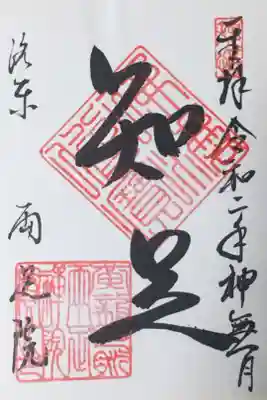 奉拝 令和二年神無月
知足
洛東 兩足院